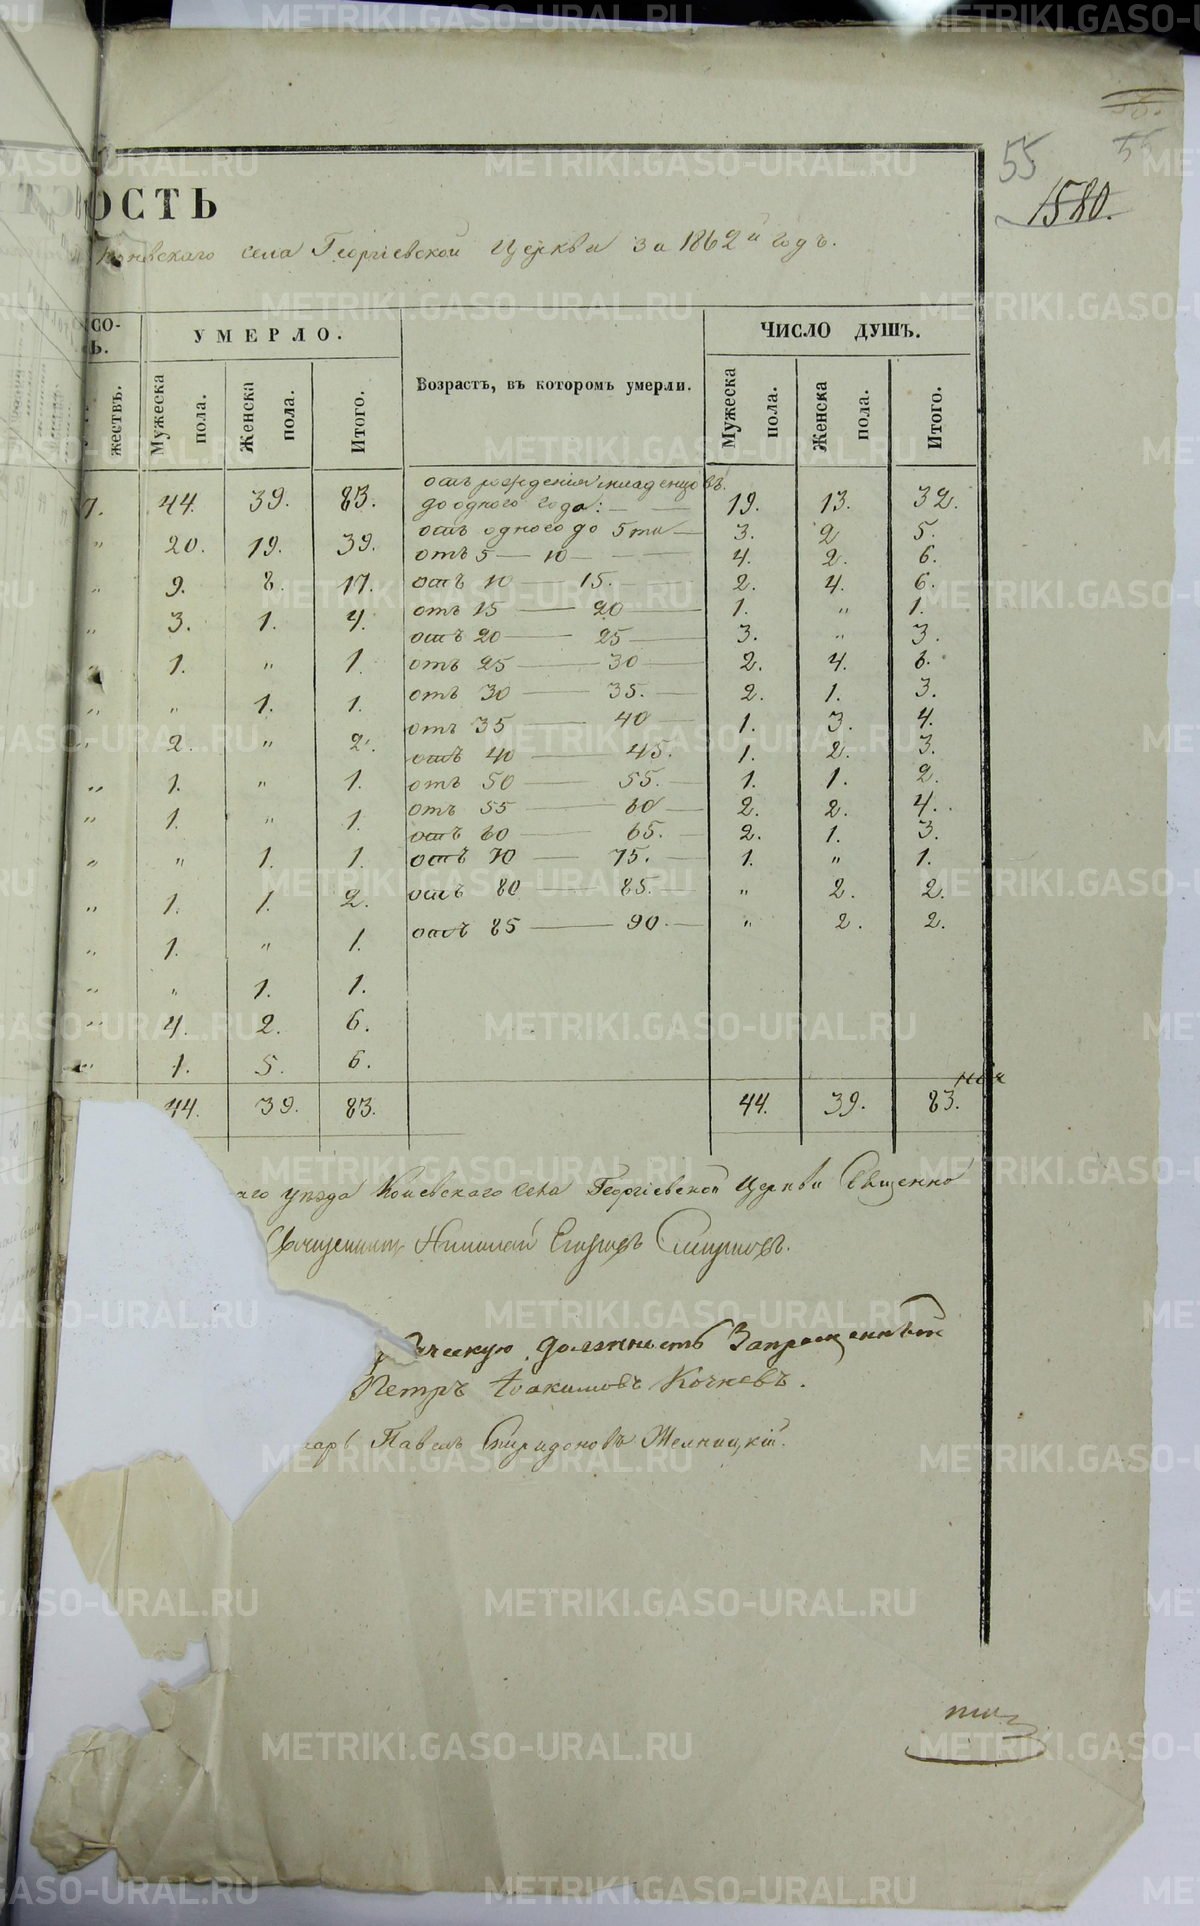 55
1580.
ОСТЬ
села Георгіевской Церкви за 1862й годъ.
СО-
Ъ.
УМЕРЛО.
Возрастъ, въ которомъ умерли.
ЧИСЛО ДУШЪ.
жествъ.
Мужеска пола.
Женска пола.
Итого.
Мужеска пола.
Женска пола.
Итого.
отъ рожденія младенцовъ
7. 44. 39. 83. до одного года: — 19. 13. 32.
" 20. 19. 39. отъ одного до 5ти — 3. 2 5.
отъ 5 — 10 — 4. 2. 6.
" 9. 8. 17. отъ 10 — 15. 2. 4. 6.
" 3. 1. 4. отъ 15 — 20 — 1. " 1.
отъ 20 — 25 — 3. " 3.
" 1. " 1. отъ 25 — 30 — 2. 4. 6.
" " 1. 1. отъ 30 — 35. — 2. 1. 3.
отъ 35 — 40 — 1. 3. 4.
" 2. " 2. отъ 40 — 45. 1. 2. 3.
" 1. " 1. отъ 50 — 55. — 1. 1. 2.
" 1. " 1. отъ 55 — 60 — 2. 2. 4.
отъ 60 — 65. — 2. 1. 3.
" " 1. 1. отъ 70 — 75. — 1. " 1.
" 1. 1. 2. отъ 80 — 85. — " 2. 2.
" 1. " 1. отъ 85 — 90. — " 2. 2.
" " 1. 1.
" 4. 2. 6.
" 1. 5. 6.
44. 39. 83. 44. 39. 83.
аго уѣзда Коневскаго села Георгіевской Церкви Священно
Священникъ Николай Егоровъ Смирновъ.
ческую должность Запрещенный
Петръ Іоакимовъ Кочневъ.
Павелъ Спиридоновъ Желницкій.
METRIKI.GASO-URAL.RU